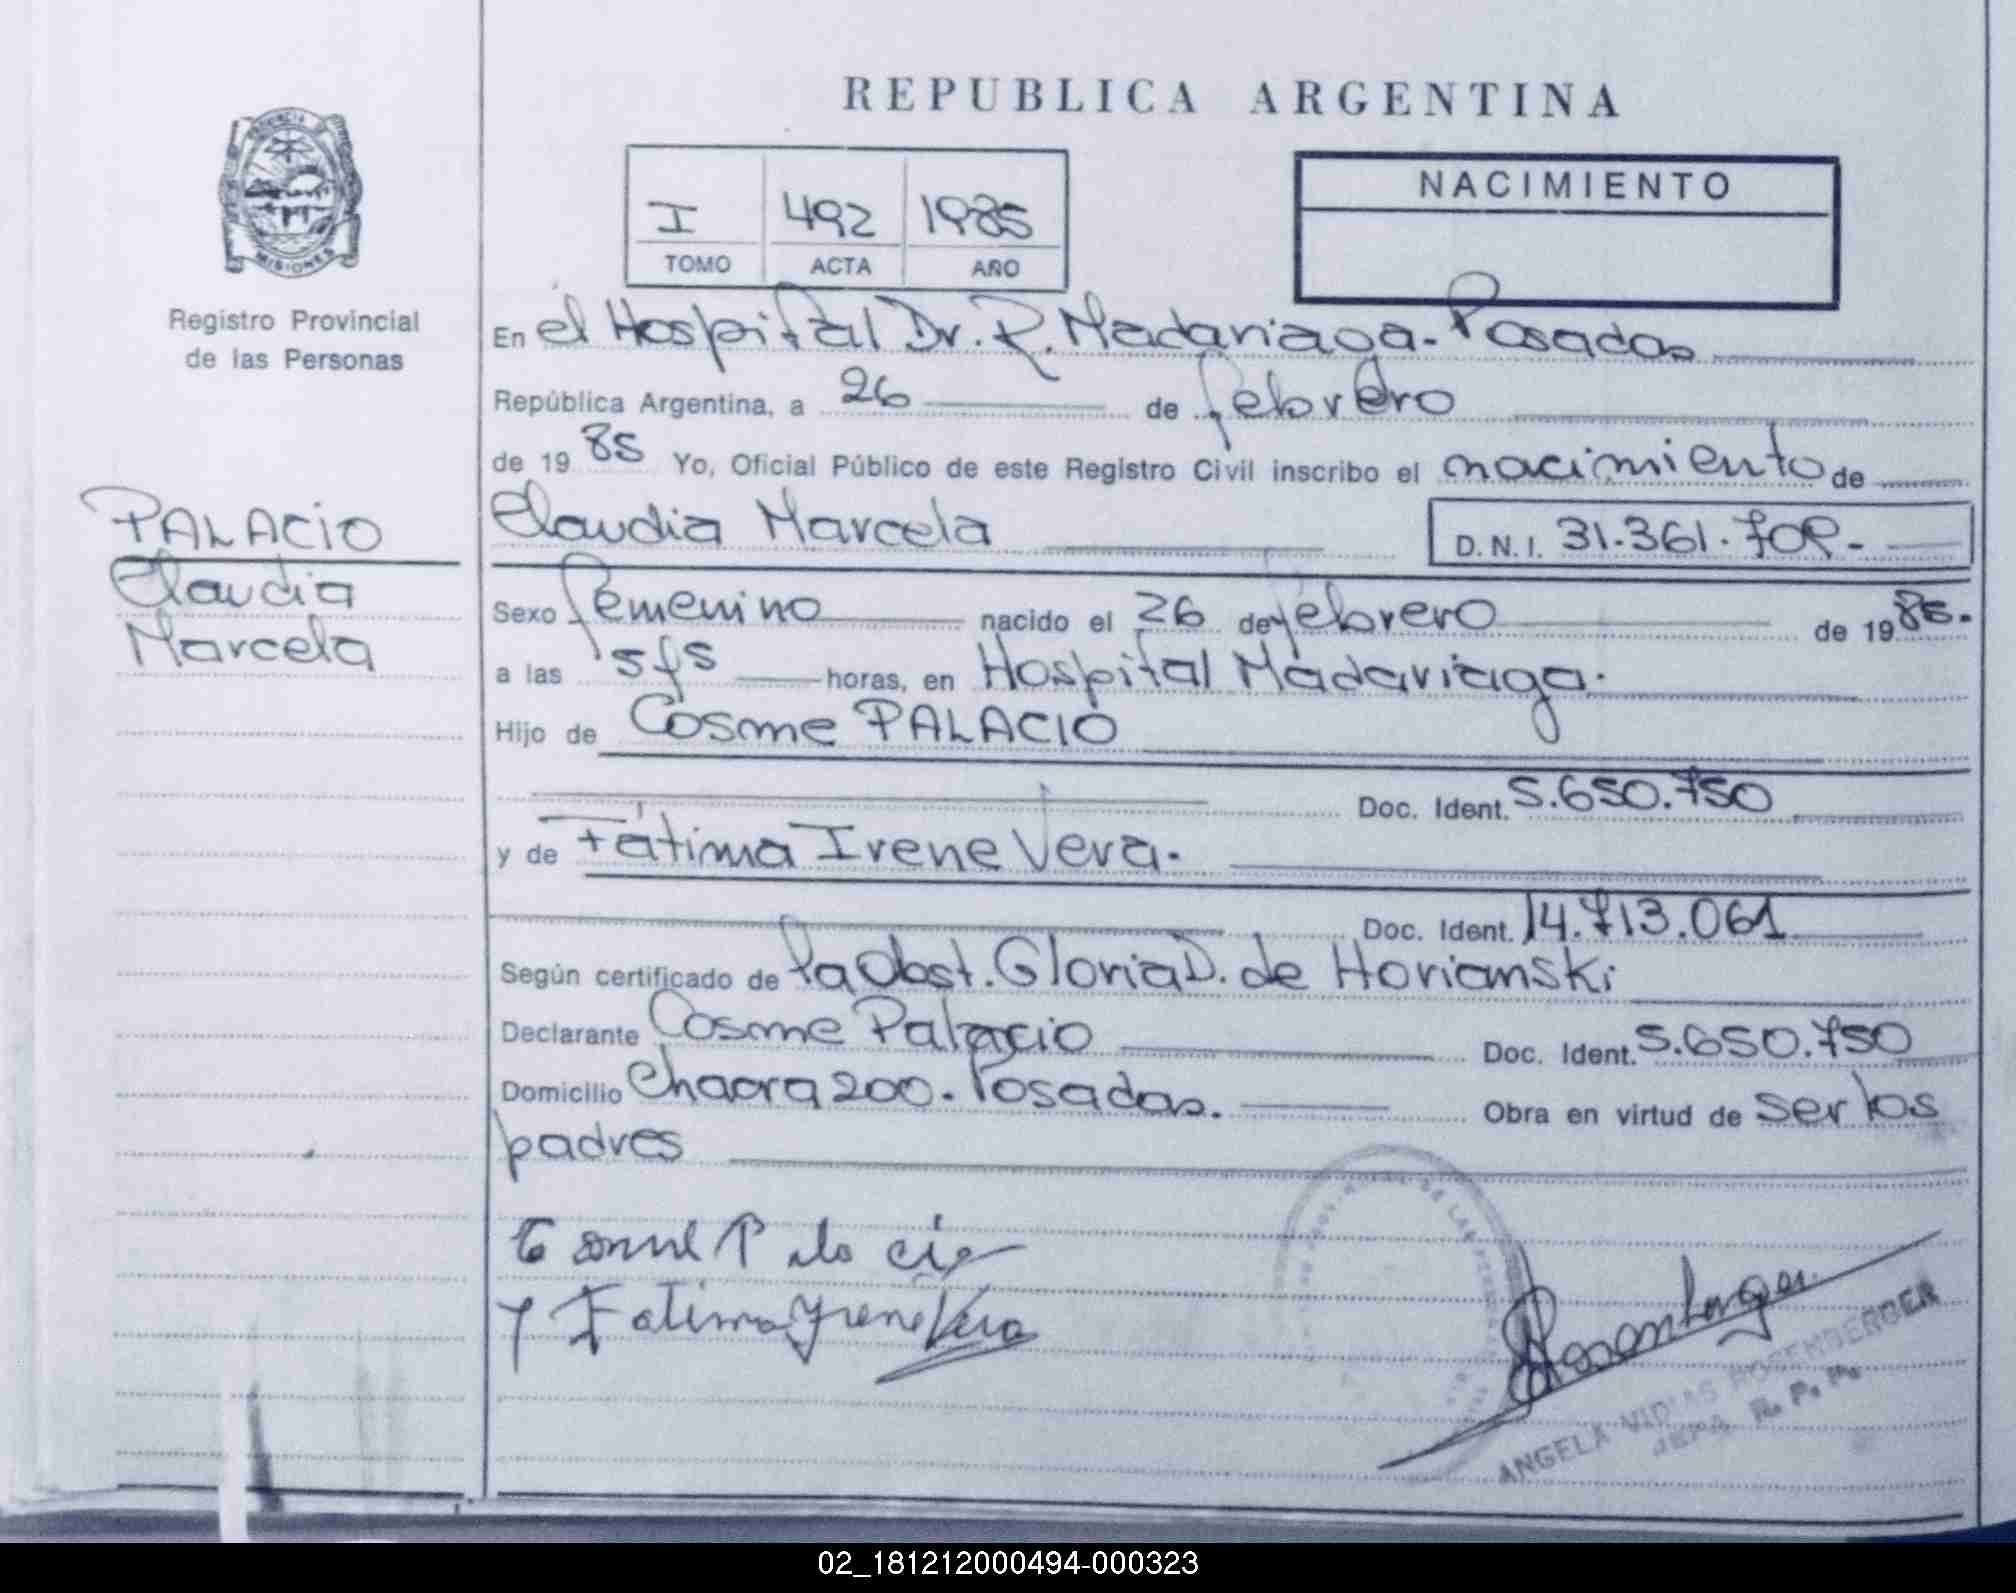 REPUBLICA ARGENTINA
PROVINCIA
MISIONES
Registro Provincial
de las Personas
I 492 1985
TOMO ACTA AÑO
NACIMIENTO
En el Hospital Dr. R. Madariaga. Posadas
República Argentina, a 26 de febrero
de 19 85 Yo, Oficial Público de este Registro Civil inscribo el nacimiento de
PALACIO
Claudia
Marcela
Claudia Marcela D. N. I. 31.361.709.-
Sexo femenino nacido el 26 de febrero de 1985.
a las horas, en Hospital Madariaga.
Hijo de Cosme PALACIO
Doc. Ident. 5.650.750
y de Fátima Irene Vera.
Doc. Ident. 14.713.061
Según certificado de la Obst. Gloria D. de Horianski
Declarante Cosme Palacio Doc. Ident. 5.650.750
Domicilio Chacra 200. Posadas. Obra en virtud de ser los
padres
Cosme Palacio
Fatima Irene Vera
ANGELA ROSEMBERGER
JEFA R. P. P.
02_181212000494-000323